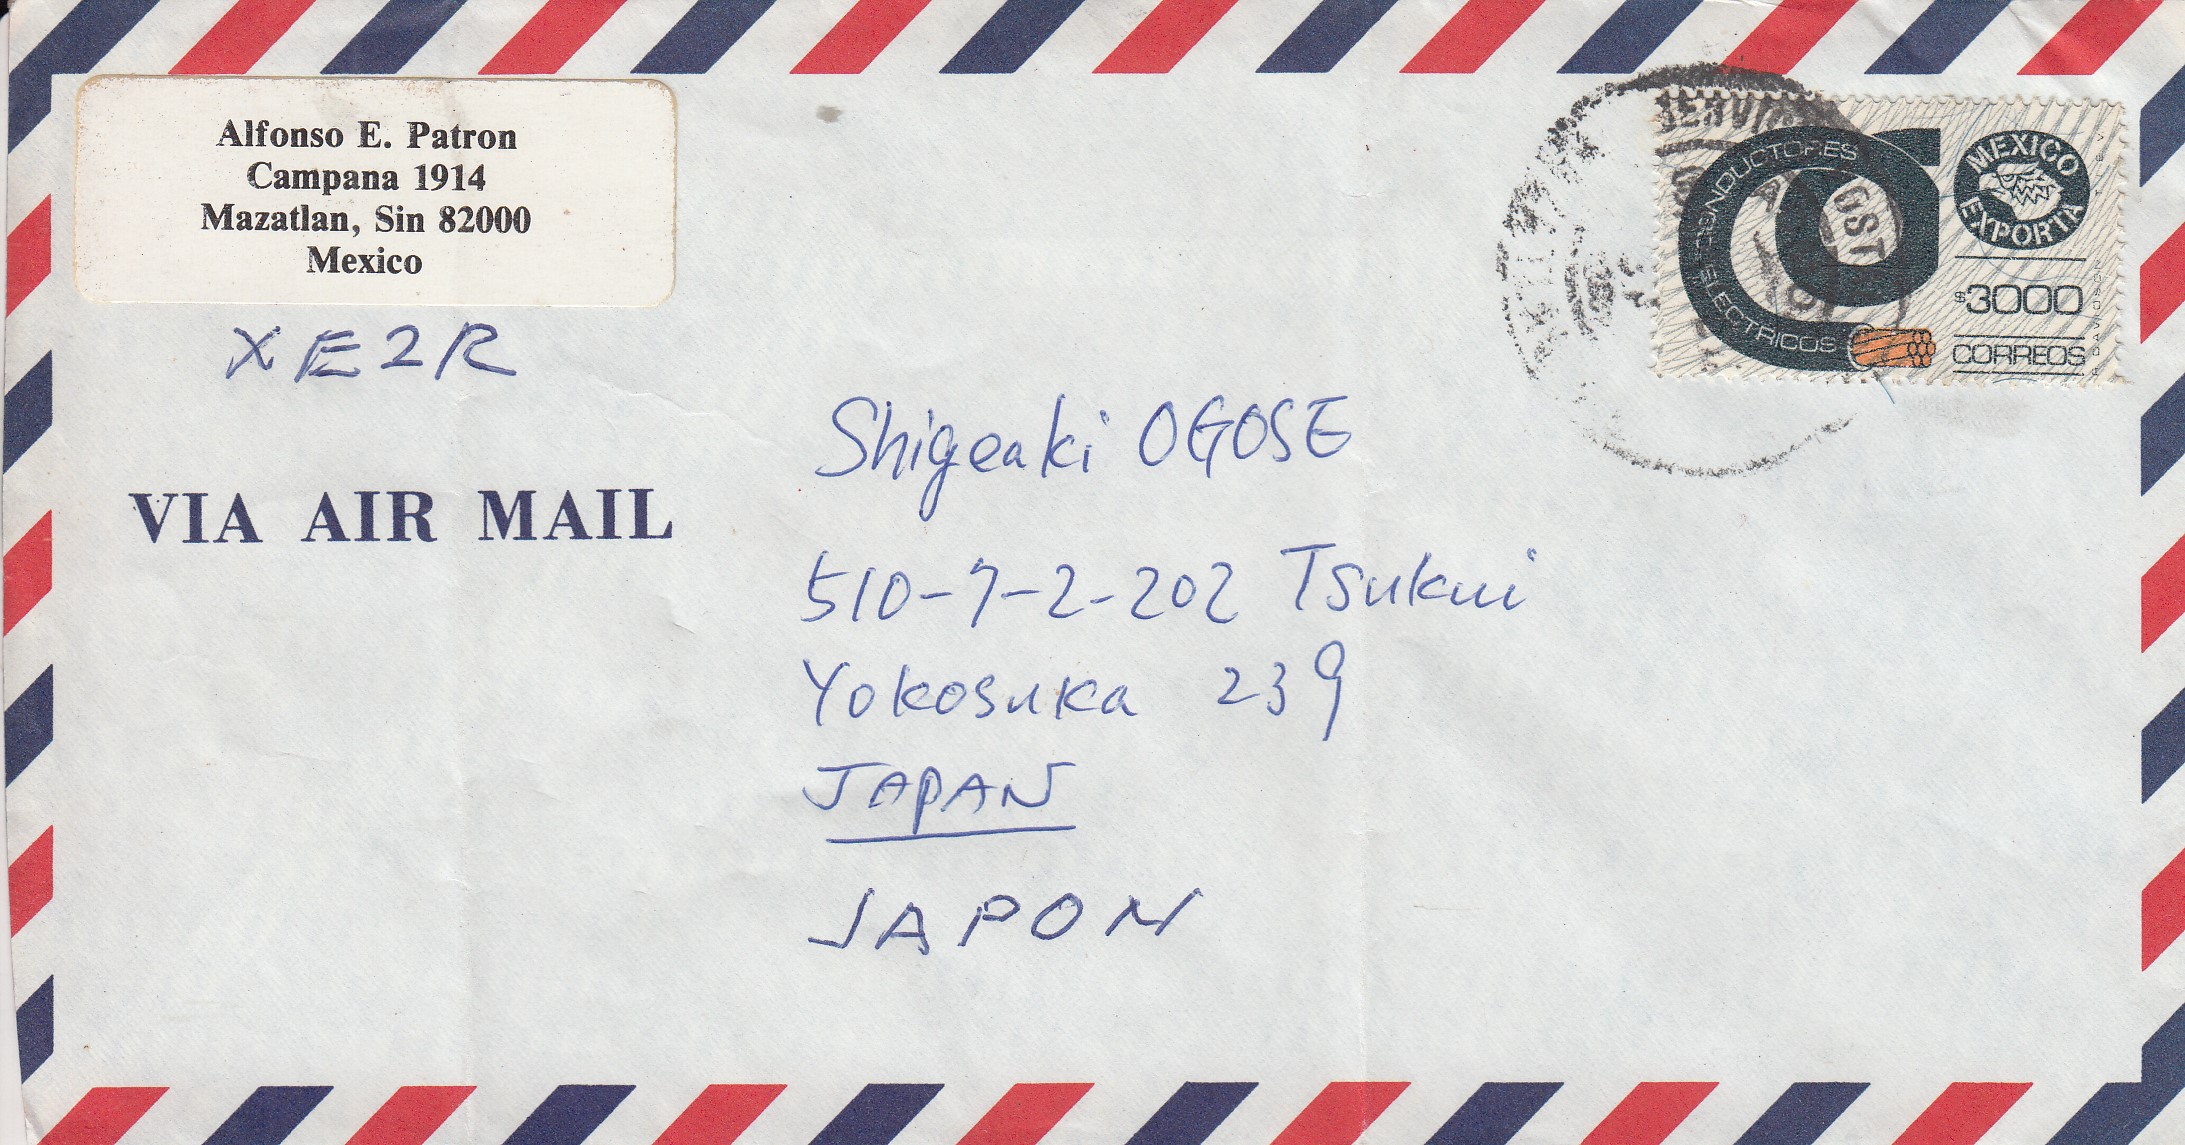 Alfonso E. Patron
Campana 1914
Mazatlan, Sin 82000
Mexico
XE2R
VIA AIR MAIL
CONDUCTORES ELECTRICOS
MEXICO
EXPORTA
$3000
CORREOS
Shigeaki OGOSE
510-7-2-202 Tsukui
Yokosuka 239
JAPAN
JAPON